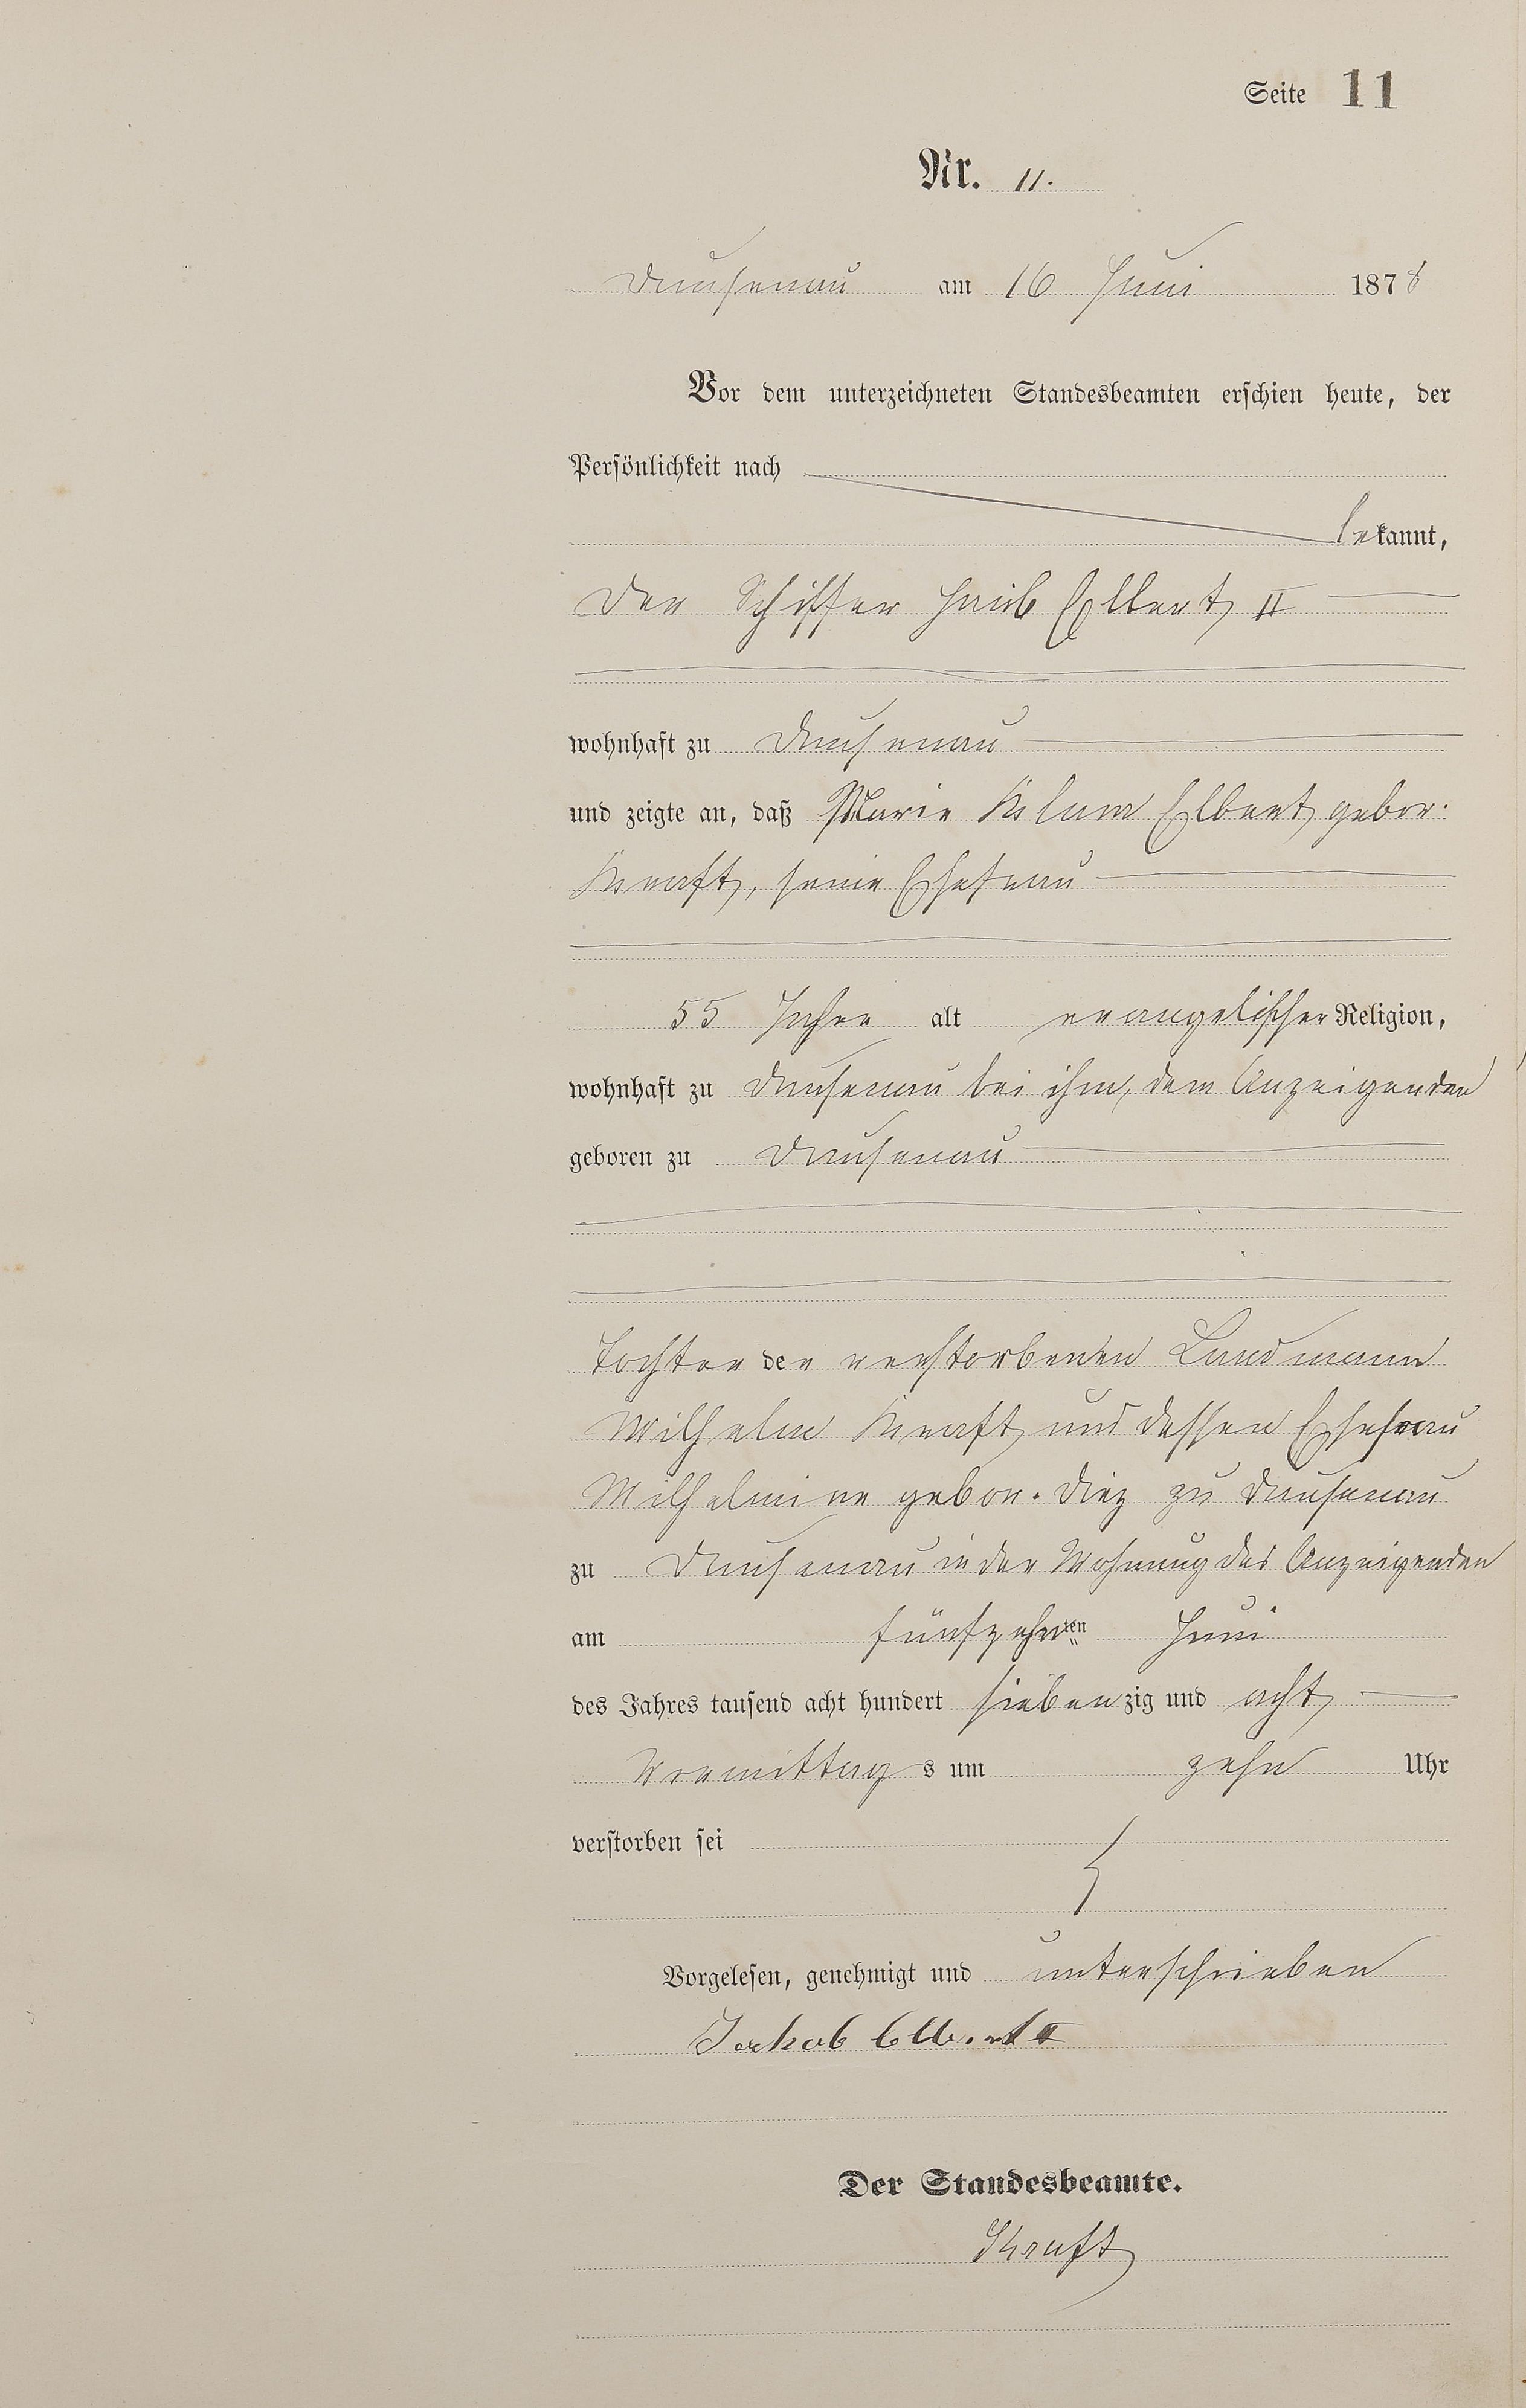 Seite 11
Nr. 11.
Dausenau am 16 Juni 1878
Vor dem unterzeichneten Standesbeamten erschien heute, der
Persönlichkeit nach
bekannt,
Der Schiffer Jakob Elbert II
wohnhaft zu Dausenau
und zeigte an, daß Marie Elbert gebor.
Kraft, seine Ehefrau
55 Jahre alt evangelischer Religion,
wohnhaft zu Dausenau bei ihm, dem Anzeigenden
geboren zu Dausenau
Tochter der verstorbenen Landmann
Wilhelm Kraft und dessen Ehefrau
Wilhelmine gebor. Diez zu Dausenau
zu Dausenau in der Wohnung des Anzeigenden
am fünfzehnten Juni
des Jahres tausend acht hundert siebenzig und acht
Vormittags um zehn Uhr
verstorben sei
Vorgelesen, genehmigt und unterschrieben
Jackob Elbert II
Der Standesbeamte.
Kraft